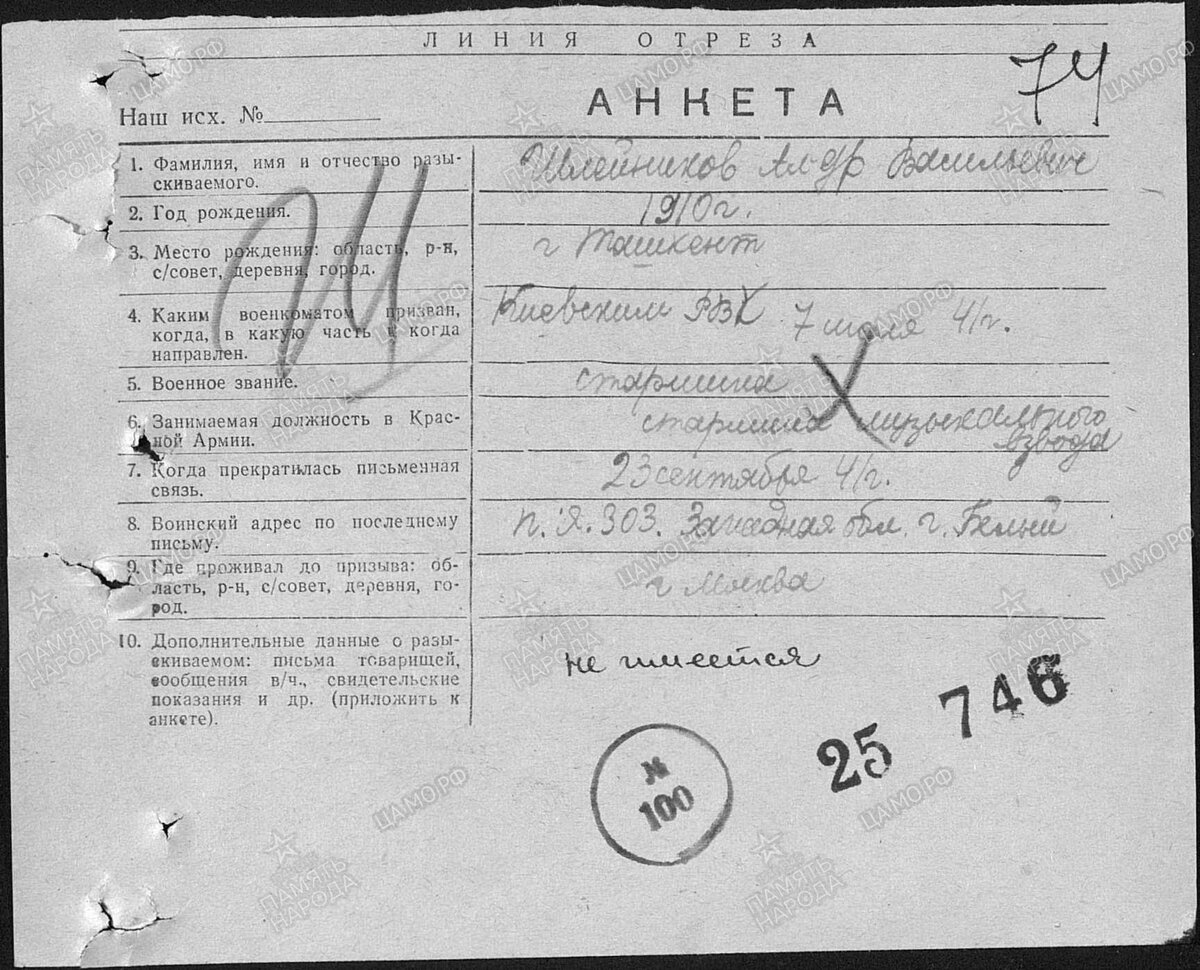 ЛИНИЯ ОТРЕЗА
74
Наш исх. №
АНКЕТА
1. Фамилия, имя и отчество разы-
скиваемого.
Шлейников Ал-др Васильевич
2. Год рождения.
1910 г.
3. Место рождения: область, р-н,
с/совет, деревня, город.
г Ташкент
4. Каким военкоматом призван,
когда, в какую часть и когда
направлен.
Киевским РВК 7 июля 41 г.
5. Военное звание.
старшина
6. Занимаемая должность в Крас-
ной Армии.
старшина музыкального
взвода
7. Когда прекратилась письменная
связь.
23 сентября 41 г.
8. Воинский адрес по последнему
письму.
п. Я. 303. Западная обл. г. Белый
9. Где проживал до призыва: об-
ласть, р-н, с/совет, деревня, го-
род.
г Москва
10. Дополнительные данные о разы-
скиваемом: письма товарищей,
сообщения в/ч., свидетельские
показания и др. (приложить к
анкете).
не имеется
Ш
25 746
№
100
ПАМЯТЬ НАРОДА
ЦАМО.РФ